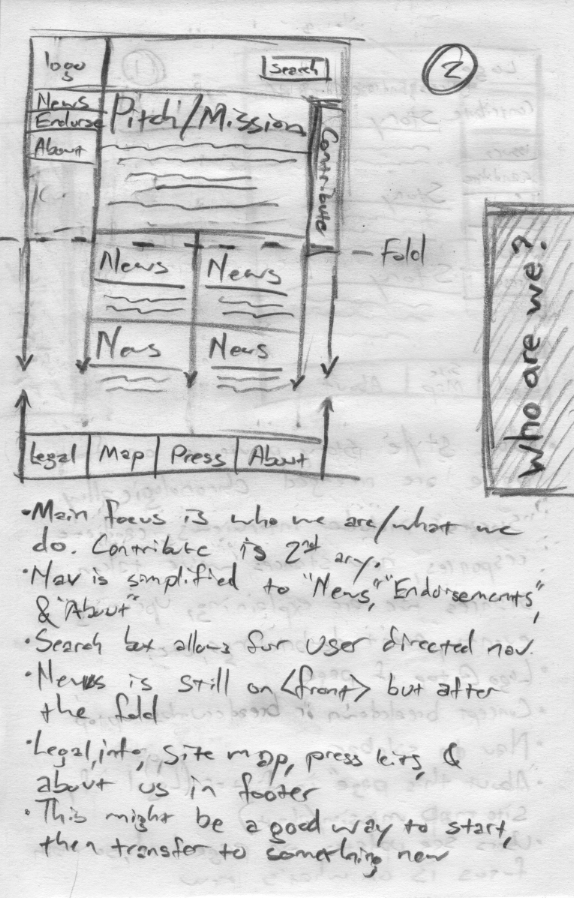 logo
Search
2
News
Endorse
About
Pitch/Mission
Contribute
Fold
News
News
News
News
Who are we?
Legal
Map
Press
About
•Main focus is who we are/what we
do. Contribute is 2nd ary.
•Nav is simplified to "News," "Endorsements",
& "About"
•Search box allows for user directed nav.
•News is still on <front> but after
the fold
•Legal, info, site map, press kits, &
about us in footer
•This might be a good way to start,
then transfer to something new